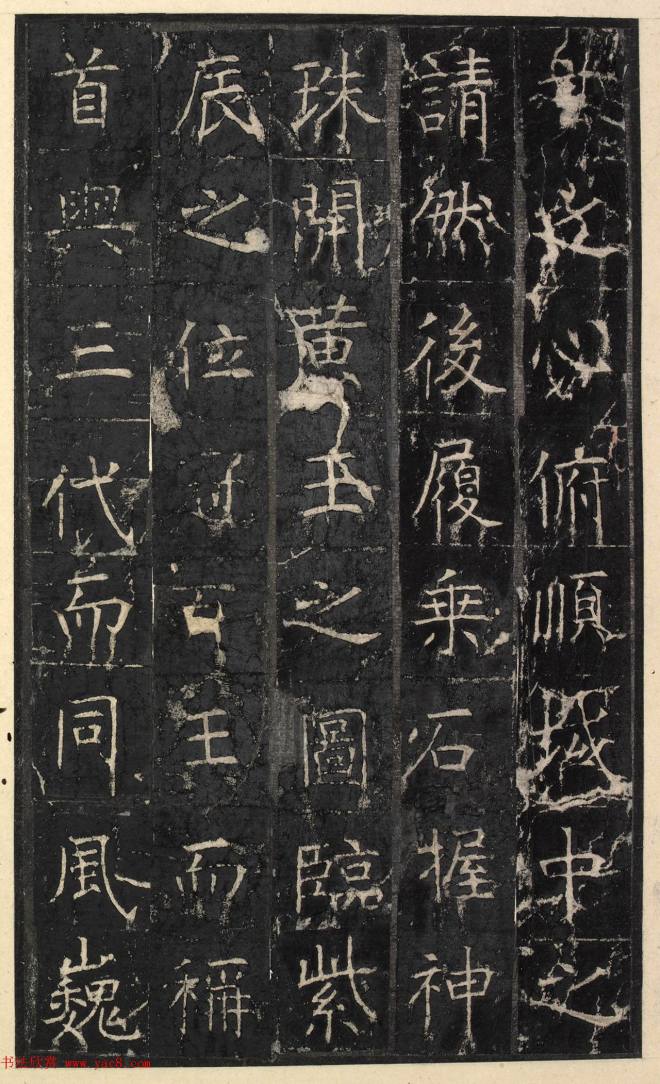 俯順域中之
請然後履乘石握神
珠開黃玉之圖臨紫
辰之位冠百王而稱
首與三代而同風巍
书法欣赏 www.yac8.com